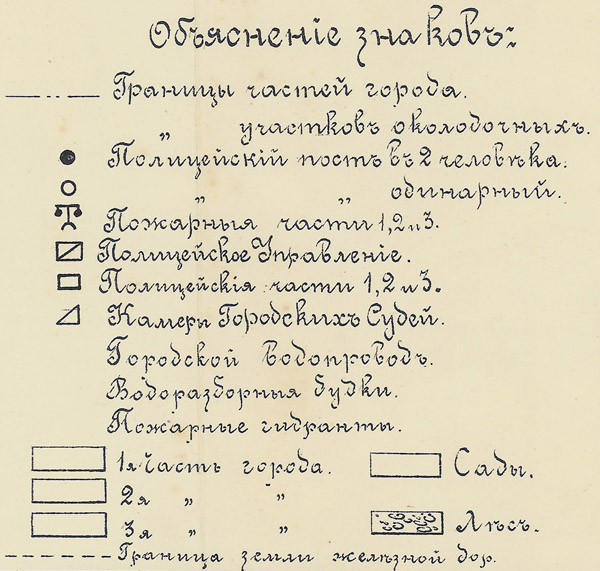 Объясненіе знаковъ:
Границы частей города.
„ участковъ околодочныхъ.
Полицейскій постъ въ 2 человѣка.
„ „ одинарный.
Пожарныя части 1, 2 и 3.
Полицейское Управленіе.
Полицейскія части 1, 2 и 3.
Камеры Городскихъ Судей.
Городской водопроводъ.
Водоразборныя будки.
Пожарные гидранты.
1я Часть города. Сады.
2я „ „
3я „ „ Лѣсъ.
Граница земли желѣзной дор.